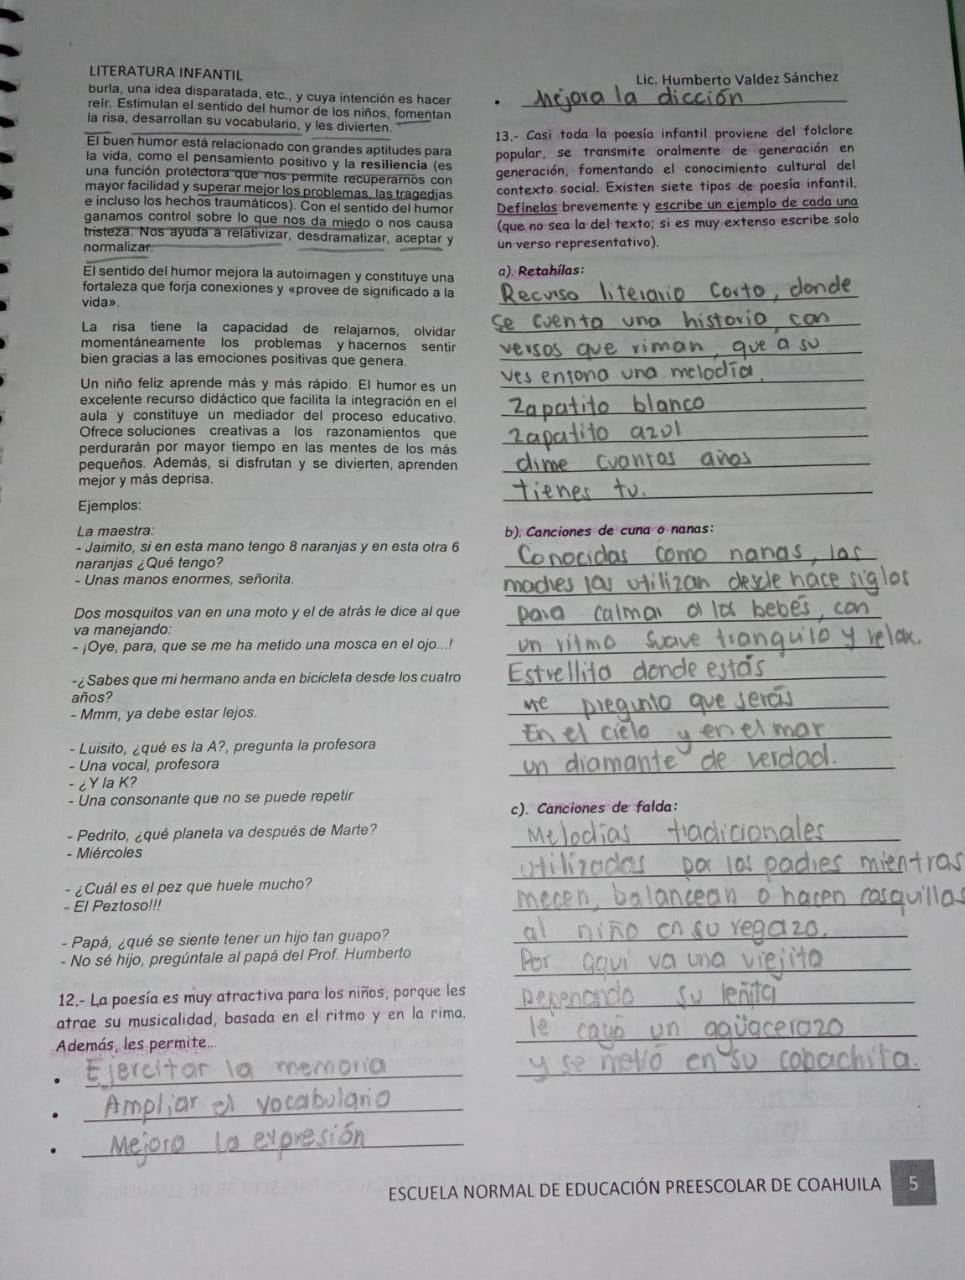 LITERATURA INFANTIL
burla, una idea disparatada, etc., y cuya intención es hacer
reír. Estimulan el sentido del humor de los niños, fomentan
la risa, desarrollan su vocabulario, y les divierten.
El buen humor está relacionado con grandes aptitudes para
la vida, como el pensamiento positivo y la resiliencia (es
una función protectora que nos permite recuperarnos con
mayor facilidad y superar mejor los problemas, las tragedias
e incluso los hechos traumáticos). Con el sentido del humor
ganamos control sobre lo que nos da miedo o nos causa
tristeza. Nos ayuda a relativizar, desdramatizar, aceptar y
normalizar.
El sentido del humor mejora la autoimagen y constituye una
fortaleza que forja conexiones y «provee de significado a la
vida».
La risa tiene la capacidad de relajarnos, olvidar
momentáneamente los problemas y hacernos sentir
bien gracias a las emociones positivas que genera.
Un niño feliz aprende más y más rápido. El humor es un
excelente recurso didáctico que facilita la integración en el
aula y constituye un mediador del proceso educativo.
Ofrece soluciones creativas a los razonamientos que
perdurarán por mayor tiempo en las mentes de los más
pequeños. Además, si disfrutan y se divierten, aprenden
mejor y más deprisa.
Ejemplos:
La maestra:
- Jaimito, si en esta mano tengo 8 naranjas y en esta otra 6
naranjas ¿Qué tengo?
- Unas manos enormes, señorita.
Dos mosquitos van en una moto y el de atrás le dice al que
va manejando:
- ¡Oye, para, que se me ha metido una mosca en el ojo...!
-¿Sabes que mi hermano anda en bicicleta desde los cuatro
años?
- Mmm, ya debe estar lejos.
- Luisito, ¿qué es la A?, pregunta la profesora
- Una vocal, profesora
- ¿Y la K?
- Una consonante que no se puede repetir
- Pedrito, ¿qué planeta va después de Marte?
- Miércoles
- ¿Cuál es el pez que huele mucho?
- El Peztoso!!!
- Papá, ¿qué se siente tener un hijo tan guapo?
- No sé hijo, pregúntale al papá del Prof. Humberto
12.- La poesía es muy atractiva para los niños, porque les
atrae su musicalidad, basada en el ritmo y en la rima.
Además, les permite...
• Ejercitar la memoria
• Ampliar el vocabulario
• Mejora la expresión
Lic. Humberto Valdez Sánchez
• Mejora la dicción
13.- Casi toda la poesía infantil proviene del folclore
popular, se transmite oralmente de generación en
generación, fomentando el conocimiento cultural del
contexto social. Existen siete tipos de poesía infantil.
Defínelas brevemente y escribe un ejemplo de cada una
(que no sea la del texto; si es muy extenso escribe solo
un verso representativo).
a). Retahílas:
Recurso literario corto, donde
se cuenta una historia, con
versos que riman, que a su
ves entona una melodía.
Zapatito blanco
zapatito azul
dime cuantos años
tienes tu.
b). Canciones de cuna o nanas:
Conocidas como nanas, las
madres las utilizan desde hace siglos
para calmar a los bebés, con
un ritmo suave tranquilo y relax.
Estrellita donde estás
me pregunto que serás
En el cielo y en el mar
un diamante de verdad.
c). Canciones de falda:
Melodías tradicionales
utilizadas por los padres mientras
mecen, balancean o hacen cosquillas
al niño en su regazo.
Por aqui va una viejita
pepenando su leñita
le cayó un aguacerazo
y se metió en su cobachita.
ESCUELA NORMAL DE EDUCACIÓN PREESCOLAR DE COAHUILA 5